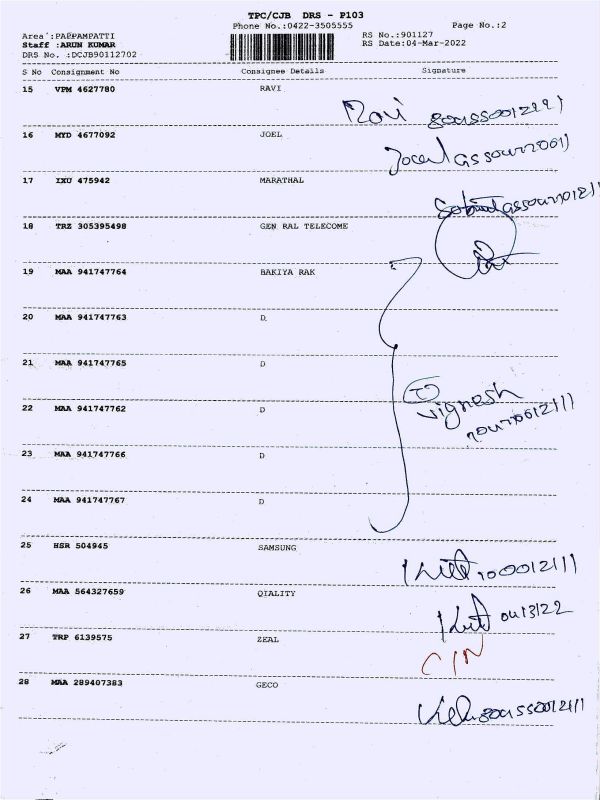 TPC/CJB DRS - P103
Phone No.:0422-3505555 Page No.:2
Area :PAPPAMPATTI RS No.:901127
Staff :ARUN KUMAR RS Date:04-Mar-2022
DRS No. :DCJB90112702
S No Consignment No Consignee Details Signature
15 VPM 4627780 RAVI
Ravi
16 MYD 4677092 JOEL
17 IXU 475942 MARATHAL
18 TRZ 305395498 GEN RAL TELECOME
19 MAA 941747764 BAKIYA RAK
20 MAA 941747763 D
21 MAA 941747765 D
22 MAA 941747762 D
Vignesh
23 MAA 941747766 D
24 MAA 941747767 D
25 HSR 504945 SAMSUNG
26 MAA 564327659 QIALITY
27 TRP 6139575 ZEAL
C/N
28 MAA 289407383 GECO